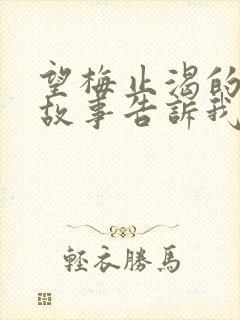 望梅止渴的
故事告訴我
輕衣勝馬